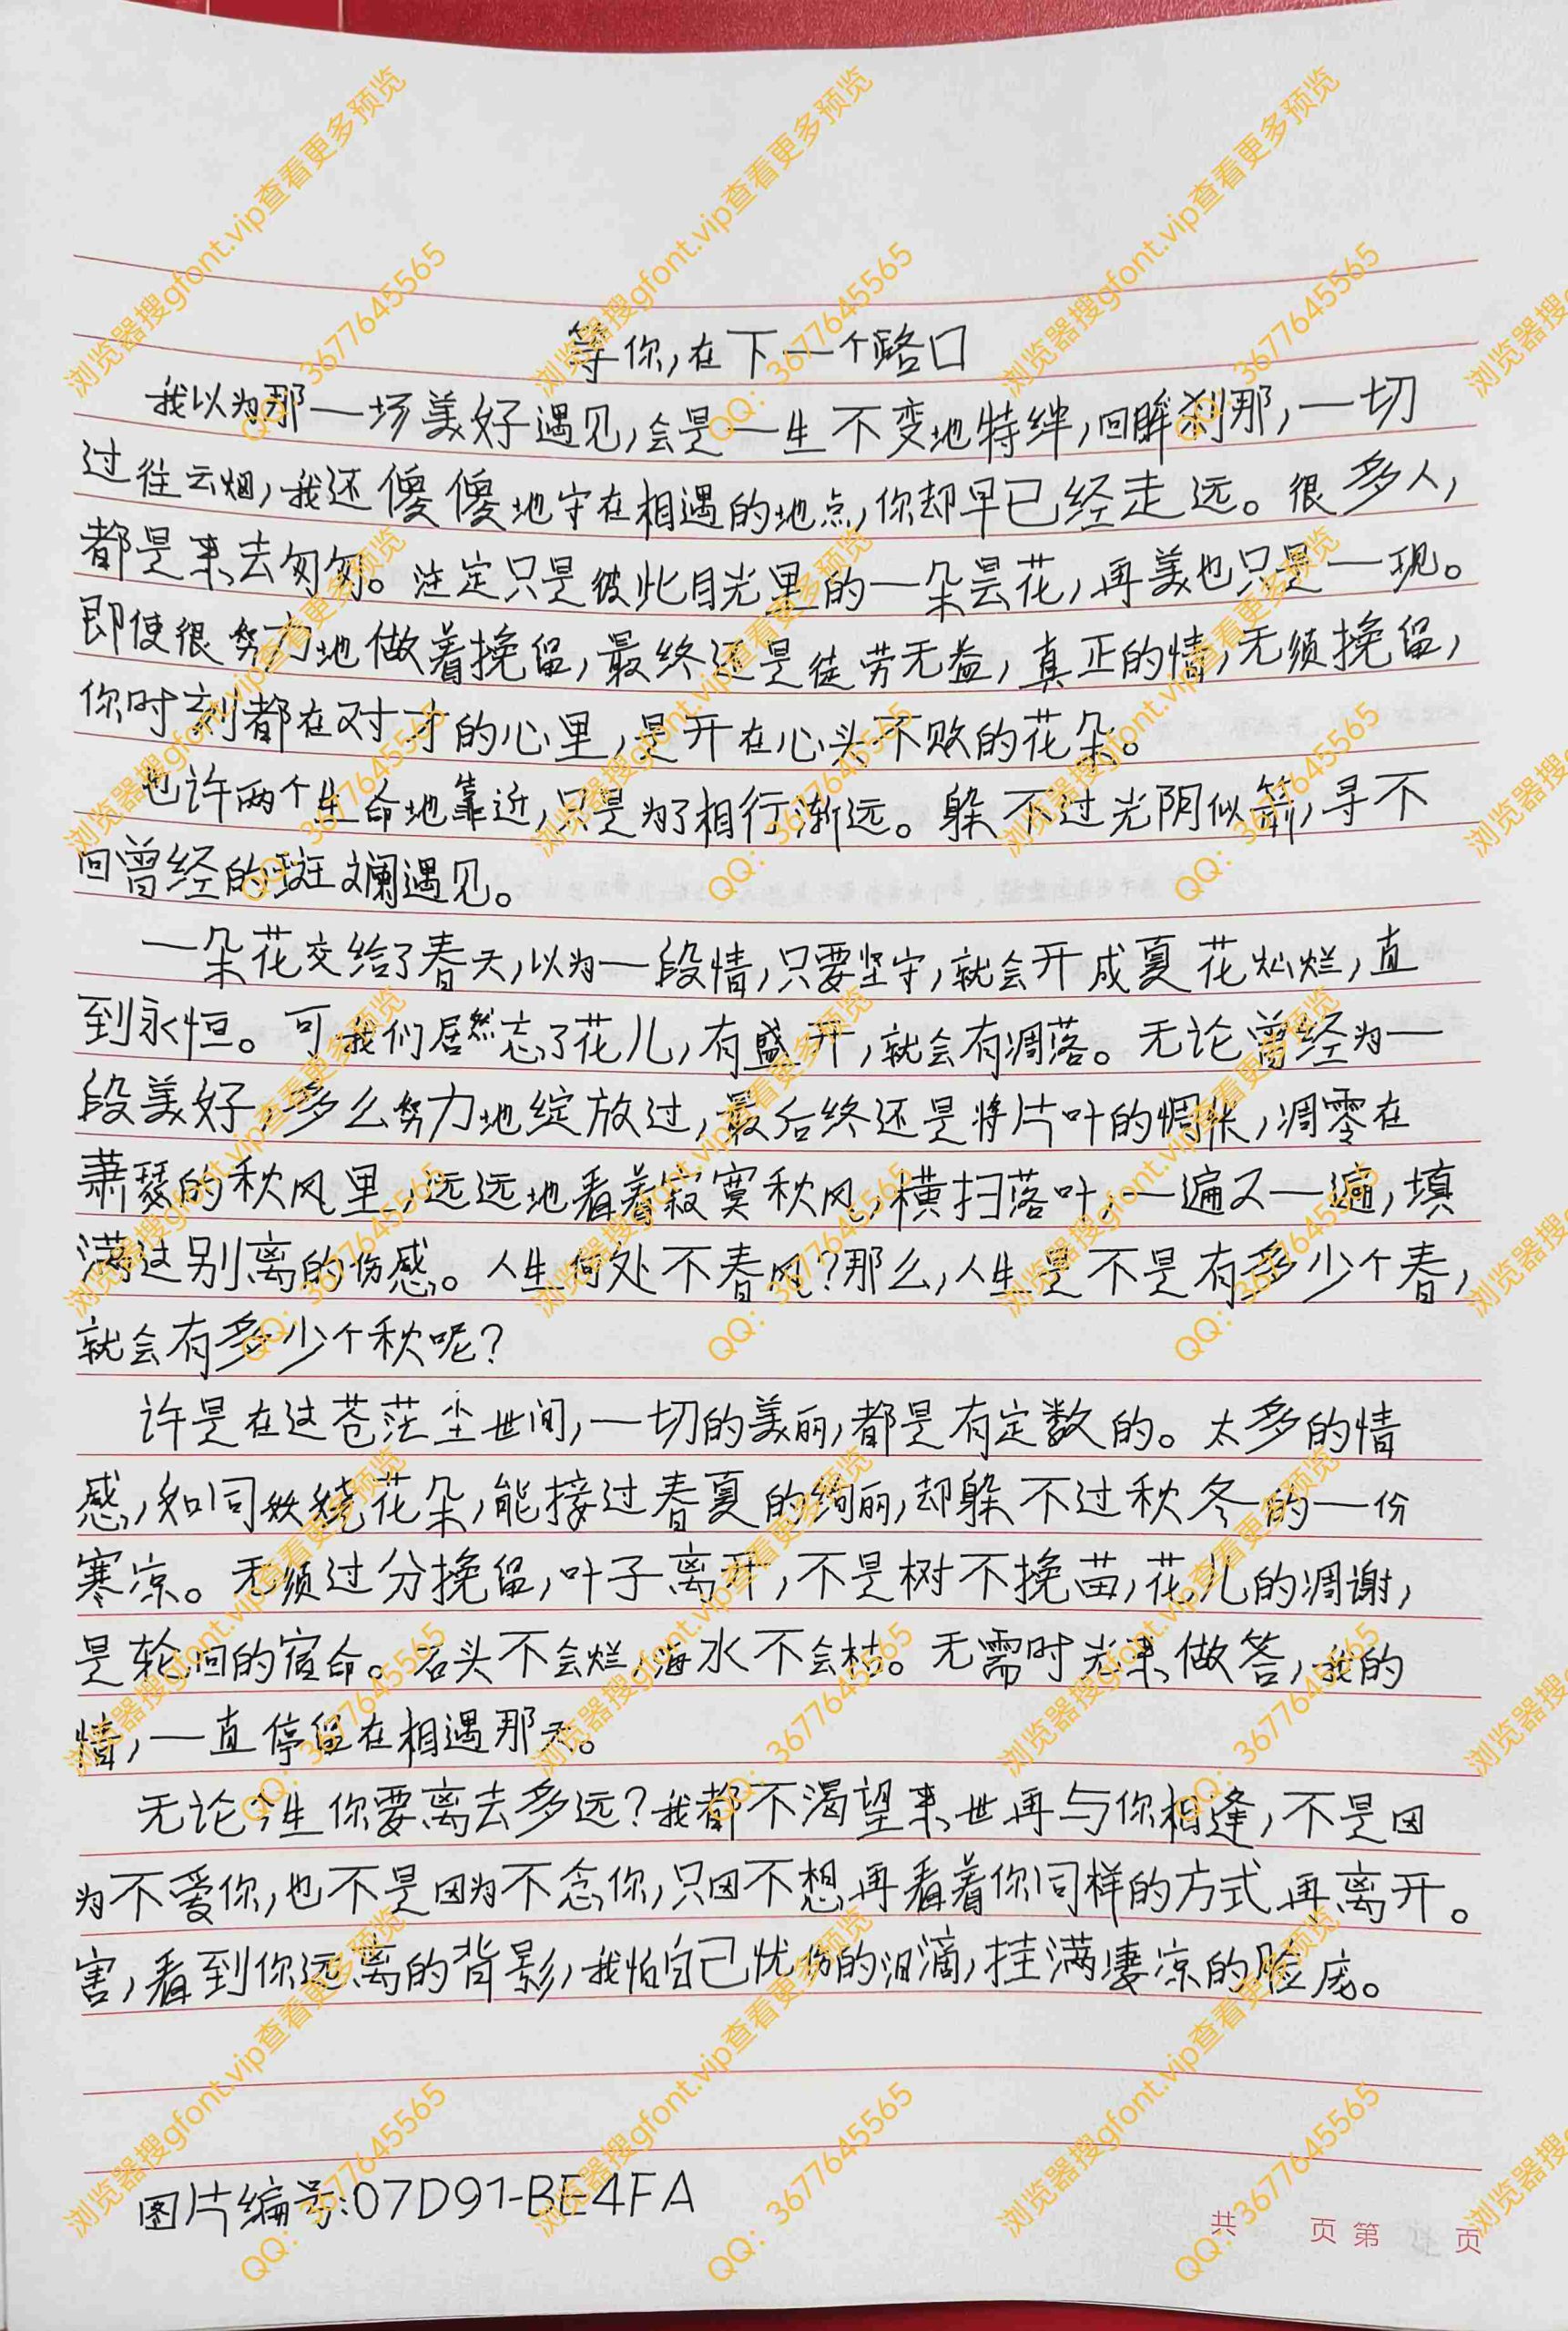 等你,在下一个路口
我以为那一场美好遇见,会是一生不变地特绊,回眸刹那,一切
过往云烟,我还傻傻地守在相遇的地点,你却早已经走远。很多人,
都是来去匆匆。注定只是彼此目光里的一朵昙花,再美也只是一现。
即使很努力地做着挽留,最终还是徒劳无益,真正的情,无须挽留,
你时刻都在对才的心里,是开在心头不败的花朵。
也许两个生命地靠近,只是为了相行渐远。躲不过光阴似箭,寻不
回曾经的斑斓遇见。
一朵花交给了春天,以为一段情,只要坚守,就会开成夏花灿烂,直
到永恒。可我们居然忘了花儿,有盛开,就会有凋落。无论曾经为一
段美好,多么努力地绽放过,最后终还是将片叶的惆怅,凋零在
萧瑟的秋风里,远远地看着寂寞秋风,横扫落叶,一遍又一遍,填
满这别离的伤感。人生何处不春风?那么,人生是不是有多少个春,
就会有多少个秋呢?
许是在这苍茫尘世间,一切的美丽,都是有定数的。太多的情
感,如同妖娆花朵,能接过春夏的绚丽,却躲不过秋冬的一份
寒凉。无须过分挽留,叶子离开,不是树不挽苗,花儿的凋谢,
是轮回的宿命。石头不会烂,海水不会枯。无需时光来做答,我的
情,一直停留在相遇那天。
无论今生你要离去多远?我都不渴望来世再与你相逢,不是因
为不爱你,也不是因为不念你,只因不想再看着你同样的方式再离开。
害,看到你远离的背影,我怕自己忧伤的泪滴,挂满凄凉的脸庞。
图片编号:07D91-BE4FA
共 页 第 页
浏览器搜gfont.vip查看更多预览
QQ: 3677645565